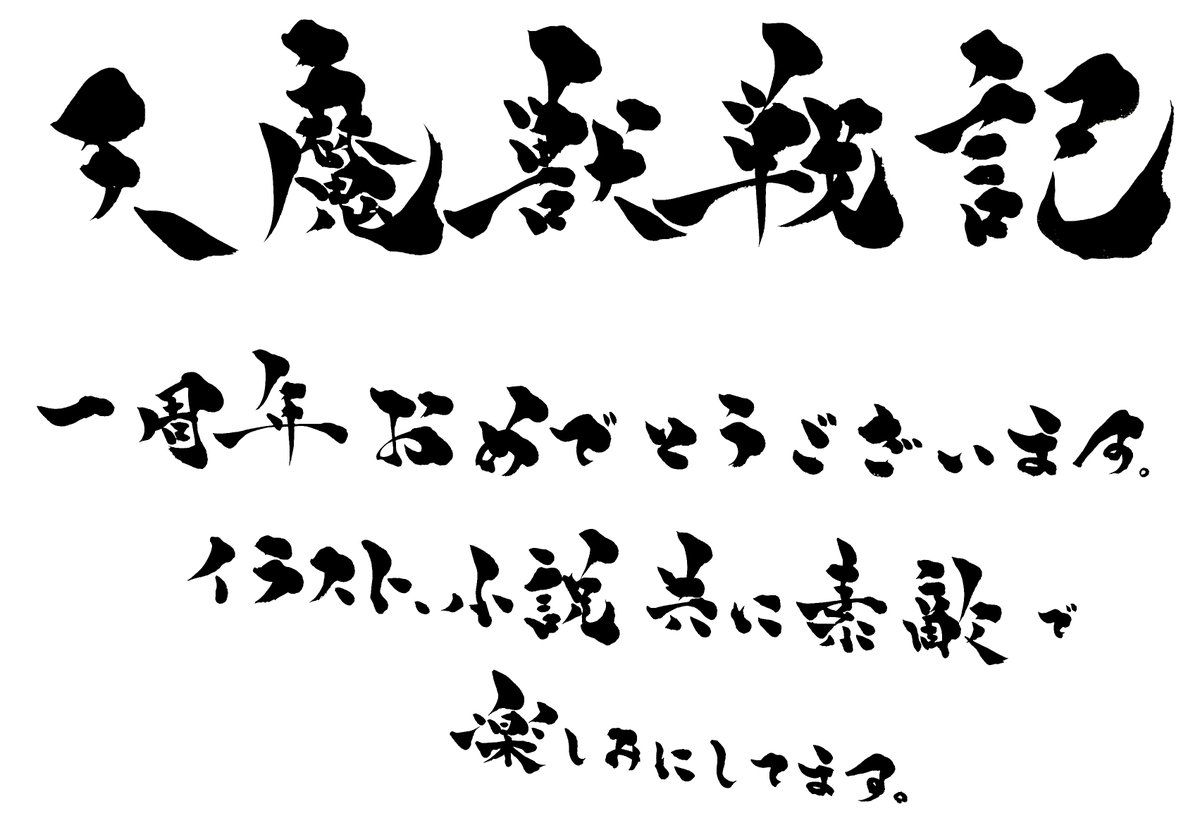 天魔獣戦記
一周年おめでとうございます。
イラスト、小説共に素敵で
楽しみにしてます。